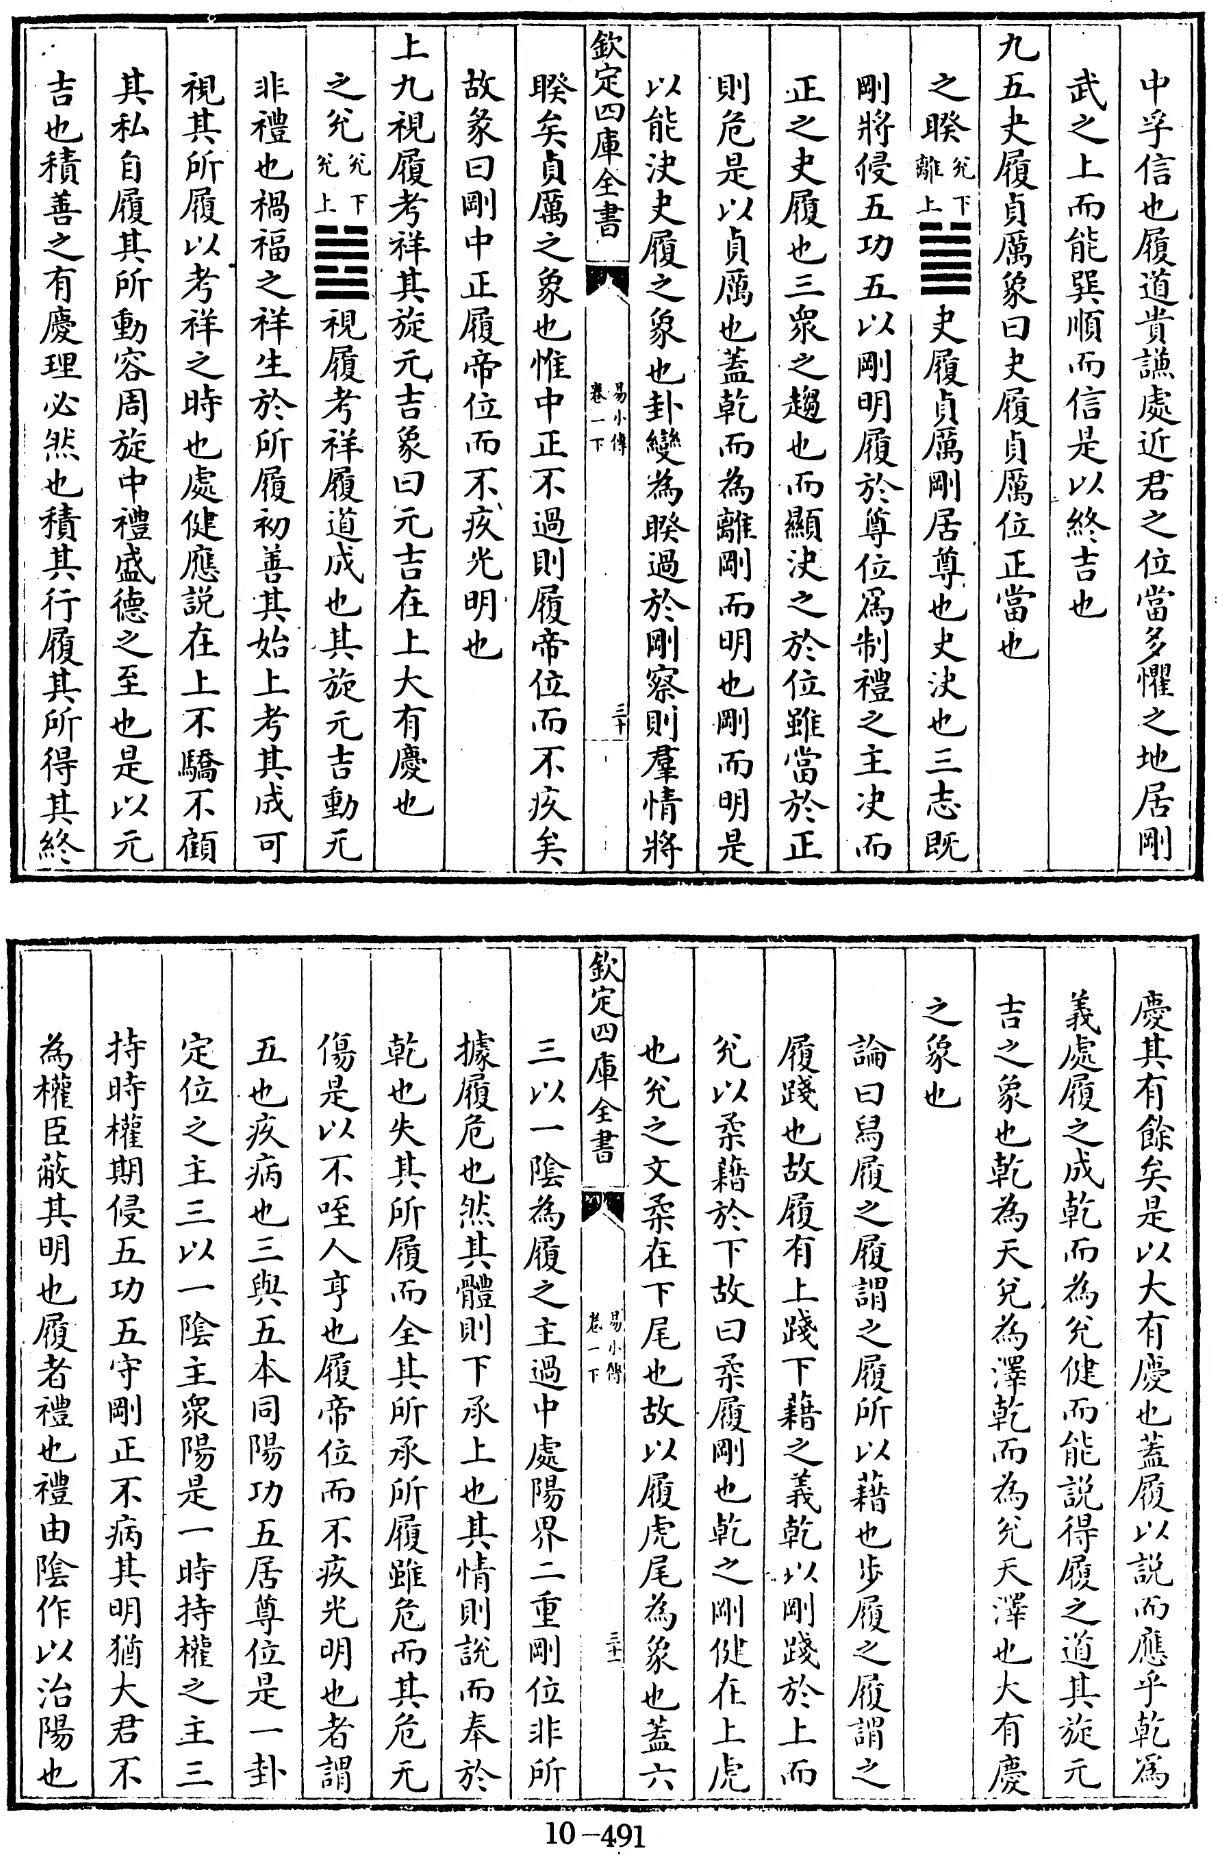 中孚信也履道貴謙處近君之位當多懼之地居剛
武之上而能巽順而信是以終吉也
九五夬履貞厲象曰夬履貞厲位正當也
之睽兊下離上䷥夬履貞厲剛居尊也夬決也三志既
剛將侵五功五以剛明履於尊位爲制禮之主決而
正之夬履也三衆之趨也而顯決之於位雖當於正
則危是以貞厲也蓋乾而為離剛而明也剛而明是
以能決夬履之象也卦變為睽過於剛察則羣情將
欽定四庫全書
易小傳
卷一下
三十
睽矣貞厲之象也惟中正不過則履帝位而不疚矣
故彖曰剛中正履帝位而不疚光明也
上九視履考祥其旋元吉象曰元吉在上大有慶也
之兊兊下兊上䷹視履考祥履道成也其旋元吉動无
非禮也禍福之祥生於所履初善其始上考其成可
視其所履以考祥之時也處健應説在上不驕不顧
其私自履其所動容周旋中禮盛德之至也是以元
吉也積善之有慶理必然也積其行履其所得其終
慶其有餘矣是以大有慶也蓋履以説而應乎乾爲
義處履之成乾而為兊健而能説得履之道其旋元
吉之象也乾為天兌為澤乾而為兊天澤也大有慶
之象也
論曰舄履之履謂之履所以藉也步履之履謂之
履踐也故履有上踐下藉之義乾以剛踐於上而
兊以柔藉於下故曰柔履剛也乾之剛健在上虎
也兊之文柔在下尾也故以履虎尾為象也蓋六
欽定四庫全書
易小傳
卷一下
三十一
三以一陰為履之主過中處陽界二重剛位非所
據履危也然其體則下承上也其情則説而奉於
乾也失其所履而全其所承所履雖危而其危无
傷是以不咥人亨也履帝位而不疚光明也者謂
五也疚病也三與五本同陽功五居尊位是一卦
定位之主三以一陰主衆陽是一時持權之主三
持時權期侵五功五守剛正不病其明猶大君不
為權臣蔽其明也履者禮也禮由陰作以治陽也
10-491